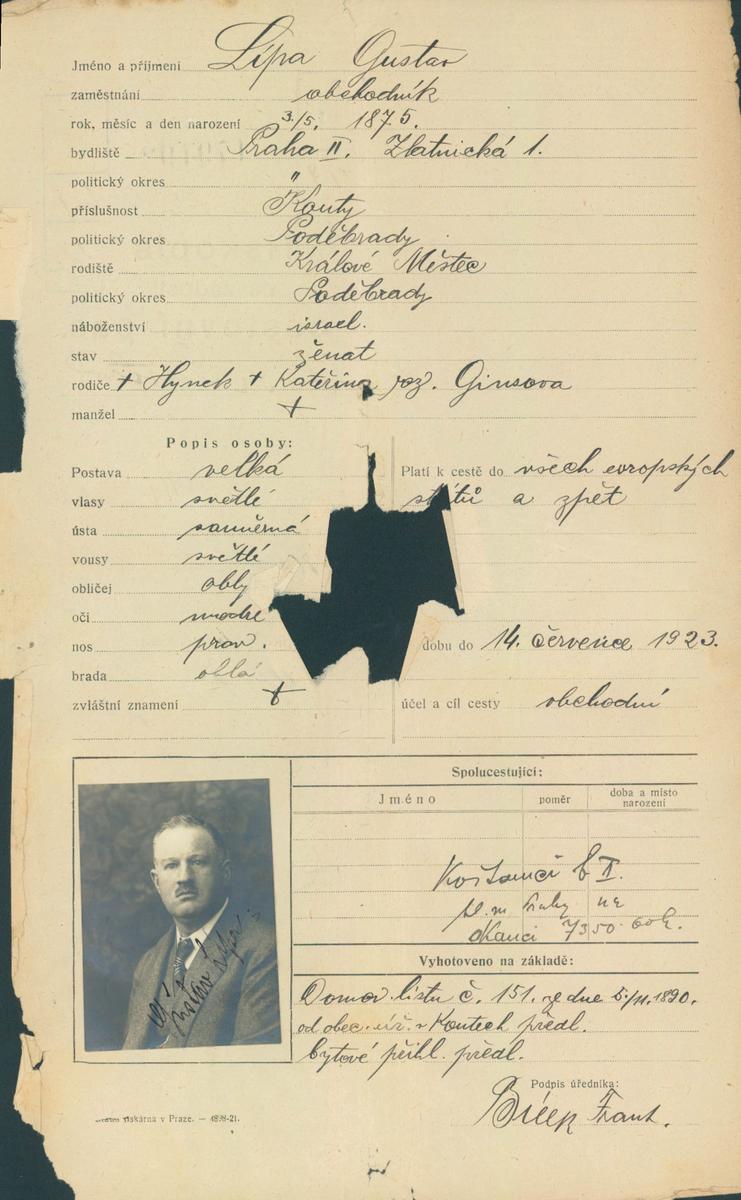 Jméno a příjmení Lípa Gustav
zaměstnání obchodník
rok, měsíc a den narození 3./5. 1875.
bydliště Praha II. Zlatnická 1.
politický okres "
příslušnost Kouty
politický okres Poděbrady
rodiště Králové Městec
politický okres Poděbrady
náboženství israel.
stav ženat
rodiče + Hynek + Kateřina roz. Ginsova
manžel +
Popis osoby:
Postava velká
vlasy světlé
ústa souměrná
vousy světlé
obličej oblý
oči modré
nos prav.
brada oblá
zvláštní znamení +
Platí k cestě do všech evropských
států a zpět
dobu do 14. července 1923.
účel a cíl cesty obchodní
Spolucestující:
Jméno poměr doba a místo narození
II.
7350
Vyhotoveno na základě:
Domov. listu č. 151. ze dne 5./11. 1890.
od obec. úř. v Koutech předl.
bytové přihl. předl.
Podpis úředníka:
Bílek Frant.
Gustav Lípa
tiskárna v Praze. — 4898-21.